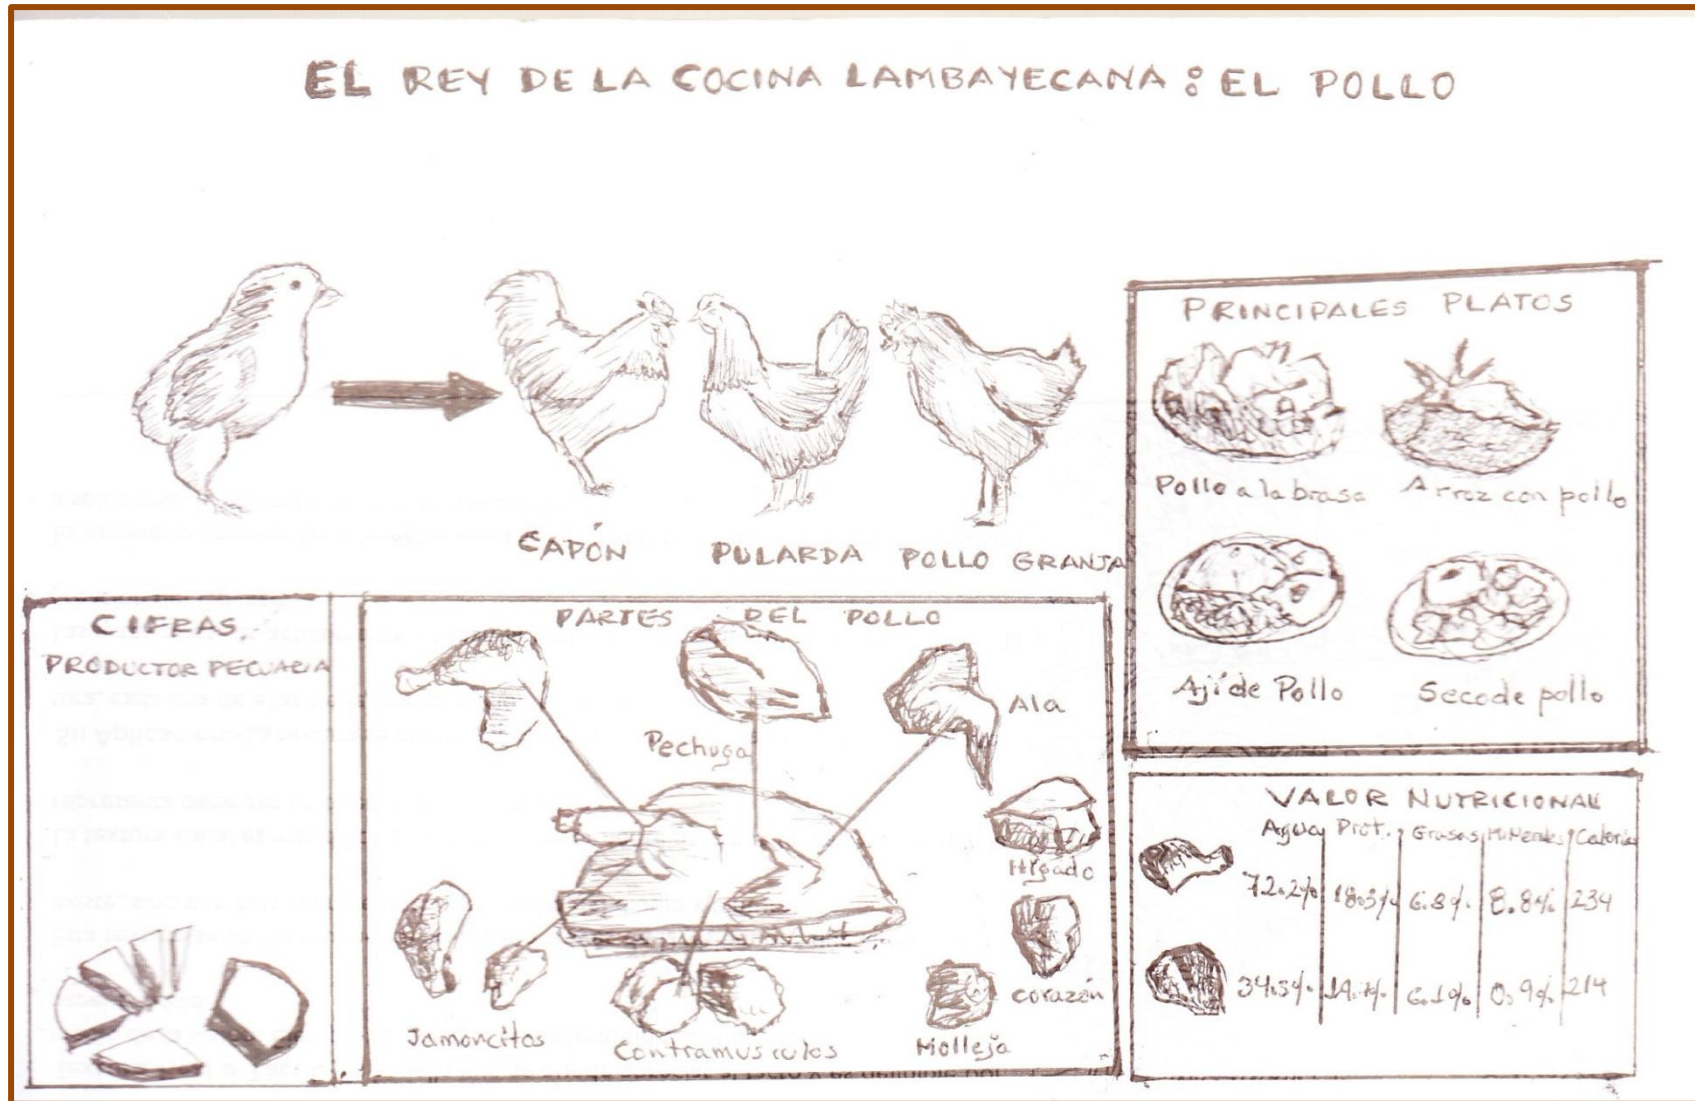 EL REY DE LA COCINA LAMBAYECANA: EL POLLO
CAPÓN PULARDA POLLO GRANJA
PRINCIPALES PLATOS
Pollo a la brasa Arroz con pollo
Ají de Pollo Seco de pollo
CIFRAS
PRODUCTOR PECUARIA
PARTES DEL POLLO
Pechuga
Ala
Hígado
corazón
Jamoncitos
Contramusculos
Molleja
VALOR NUTRICIONAL
Agua Prot. Grasas Calorías
72.2% 18.3% 6.8% 234
34.5% 6.1% 0.9% 214